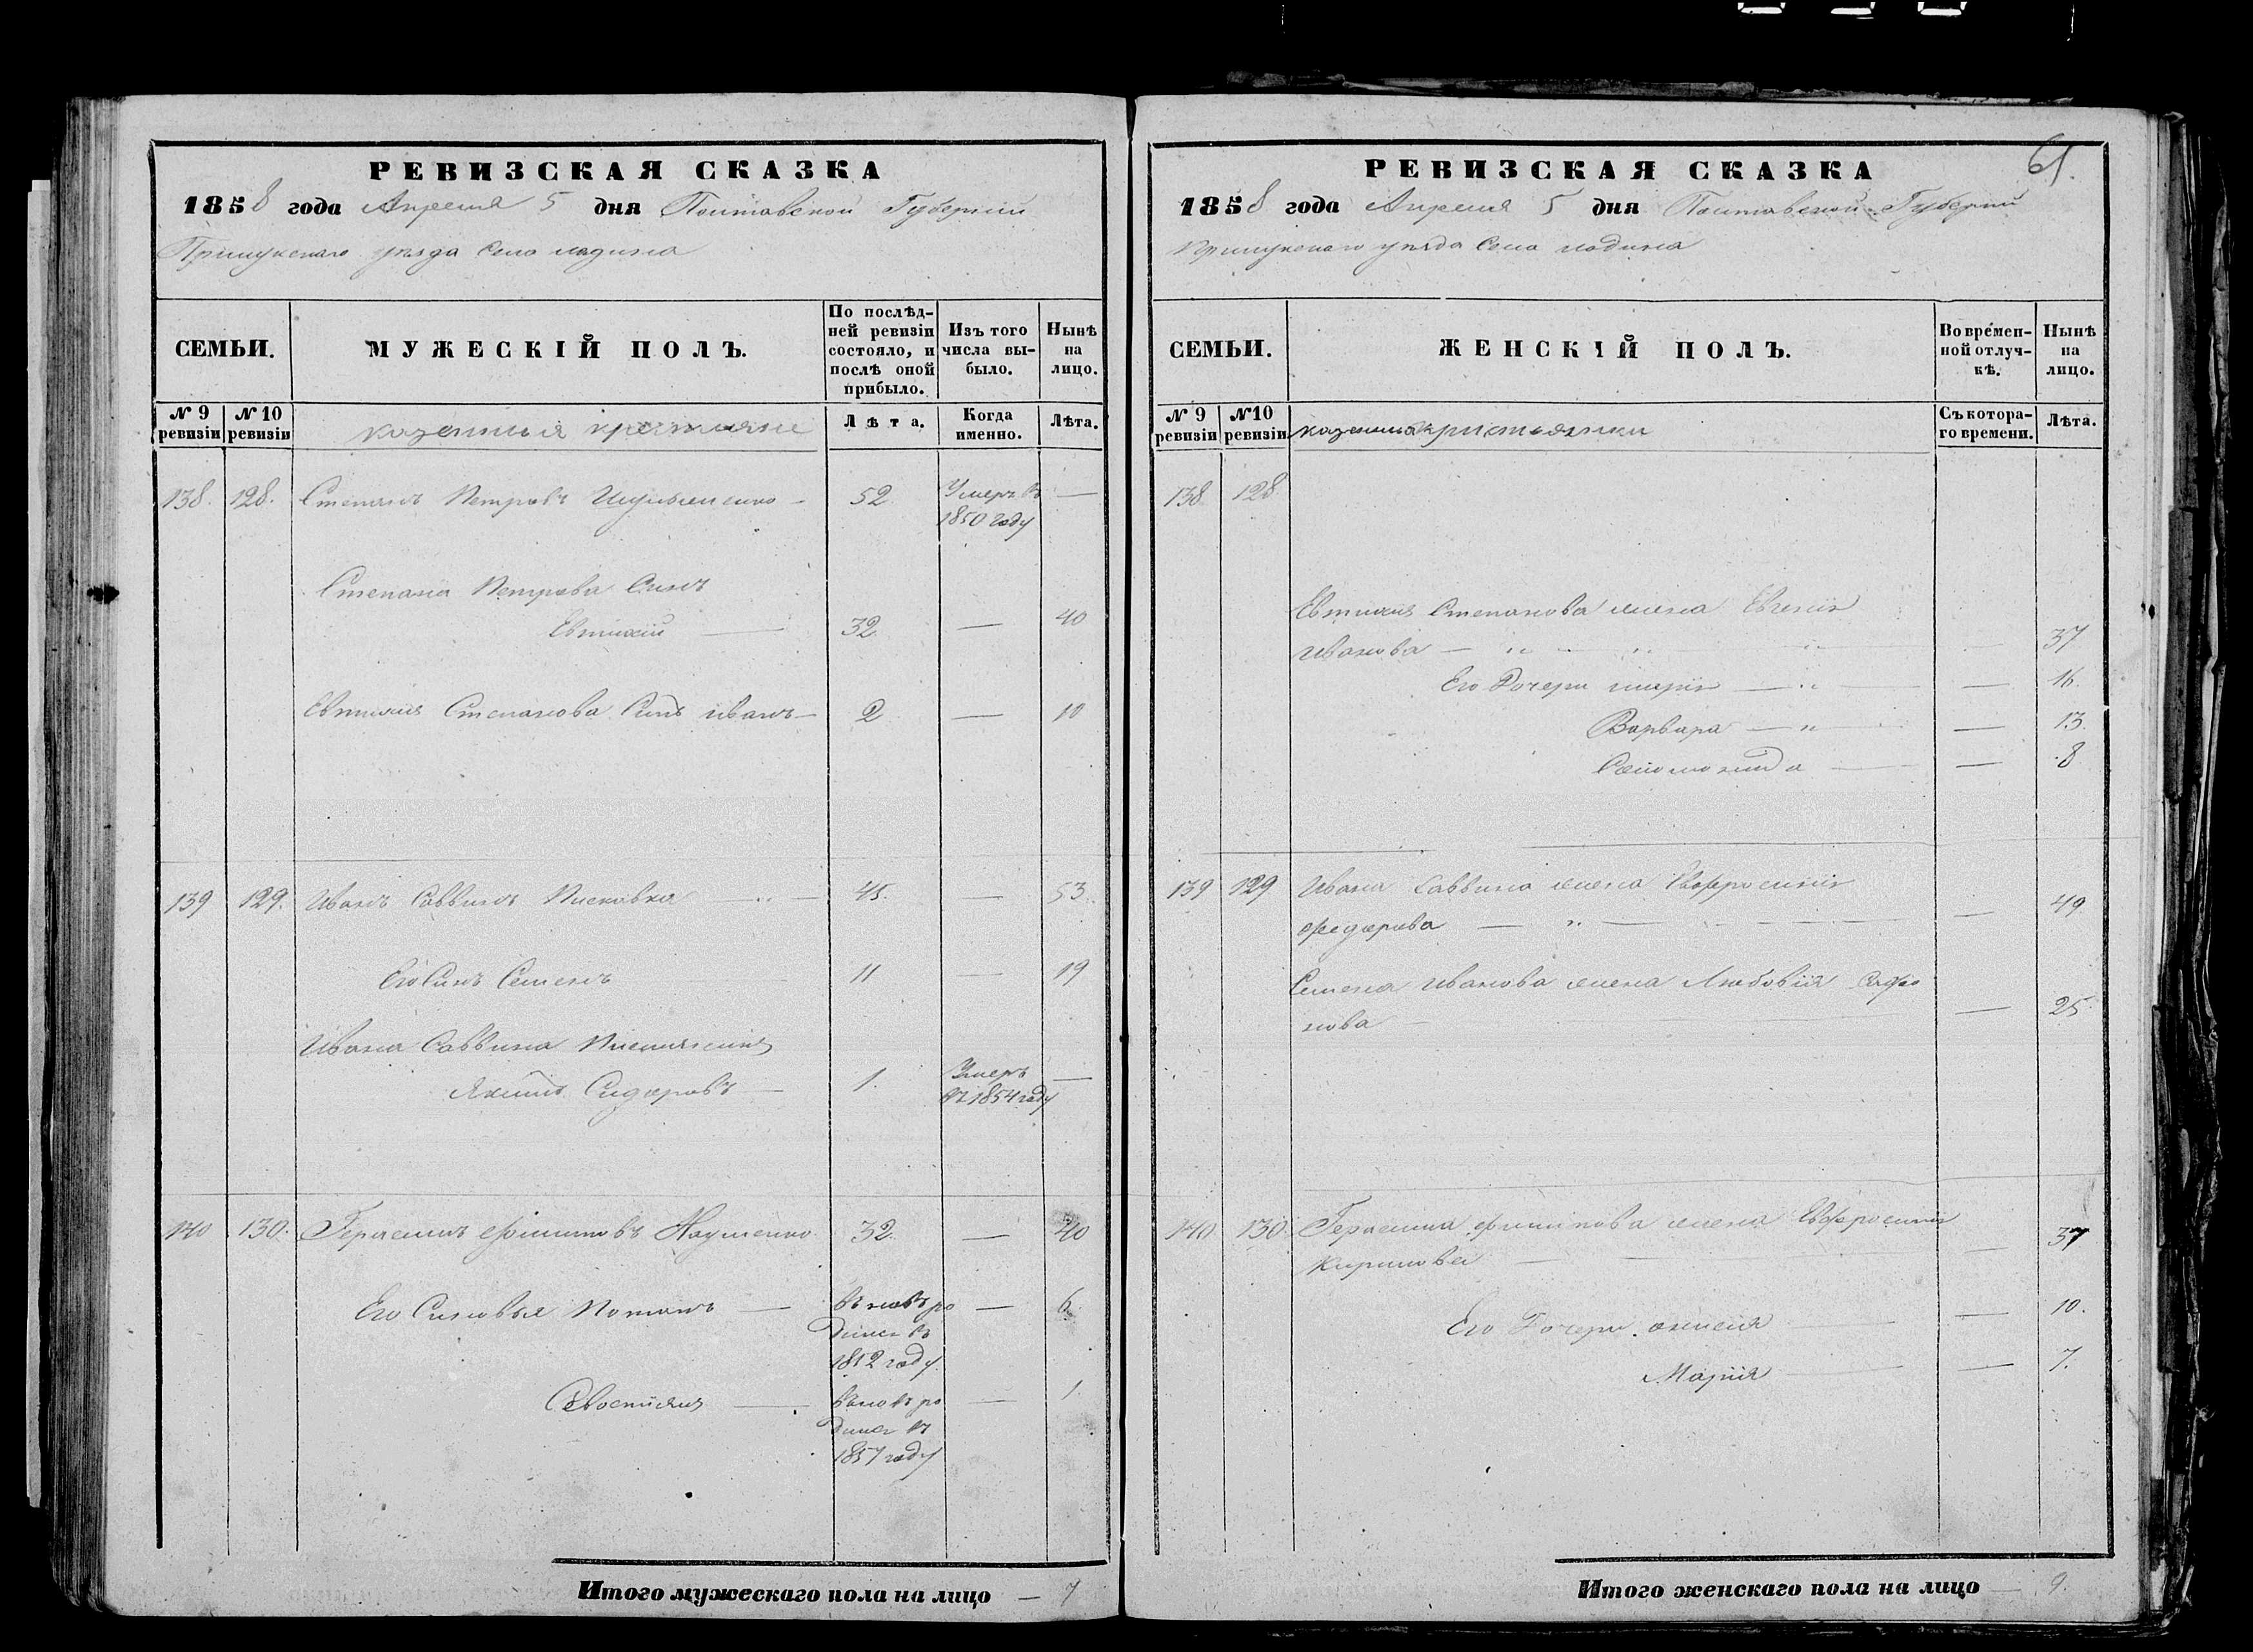 РЕВИЗСКАЯ СКАЗКА
1858 года Апреля 5 дня Полтавской Губернии
Прилукскаго уезда Села ладина
СЕМЬИ.
МУЖЕСКІЙ ПОЛЪ.
По послѣд-
ней ревизіи
состояло, и
послѣ оной
прибыло.
Изъ того
числа вы-
было.
Нынѣ
на
лицо.
№ 9
ревизіи
№ 10
ревизіи
казенныя
Лѣта.
Когда
именно.
Лѣта.
138. 128. Степанъ Петровъ 52. Умеръ въ —
1850 году
Степана Петрова Синъ
Евтихій — 32. — 40
Евтихия Степанова Синъ иванъ — 2 — 10
139 129. Иванъ Саввинъ — 45. — 53.
Его Синъ Семенъ 11 — 19
Ивана Саввина
Якимъ Сидоровъ — 1. Умеръ —
въ 1854 году
140 130. Герасимъ Филиповъ Науменко 32. — 40
Его Синовья Потапъ — въ новъ ро — 6.
дился въ
1852 году.
Севостиянъ — вновъ ро — 1.
дился въ
1857 году
Итого мужескаго пола на лицо — 7
61.
РЕВИЗСКАЯ СКАЗКА
1858 года Апреля 5 дня Полтавской Губернии
Прилукскаго уезда Села ладина
СЕМЬИ.
ЖЕНСКІЙ ПОЛЪ.
Во времен-
ной отлуч-
кѣ.
Нынѣ
на
лицо.
№ 9
ревизіи
№10
ревизіи
Съ котора-
го времени.
Лѣта.
138 128
Евтихия Степанова жена Евгения
иванова — — 37
Его Дочери — — 16.
Варвара — — 13.
— — 8
139 129 Ивана Саввина жена Евфросиния
федорова — — 49
Семена Иванова жена Любовия Сафо
нова — — 25.
140 130 Герасима филипова жена Евфросиния
кирилова — — 37
Его Дочери — — 10.
Мария — — 7.
Итого женскаго пола на лицо — 9.